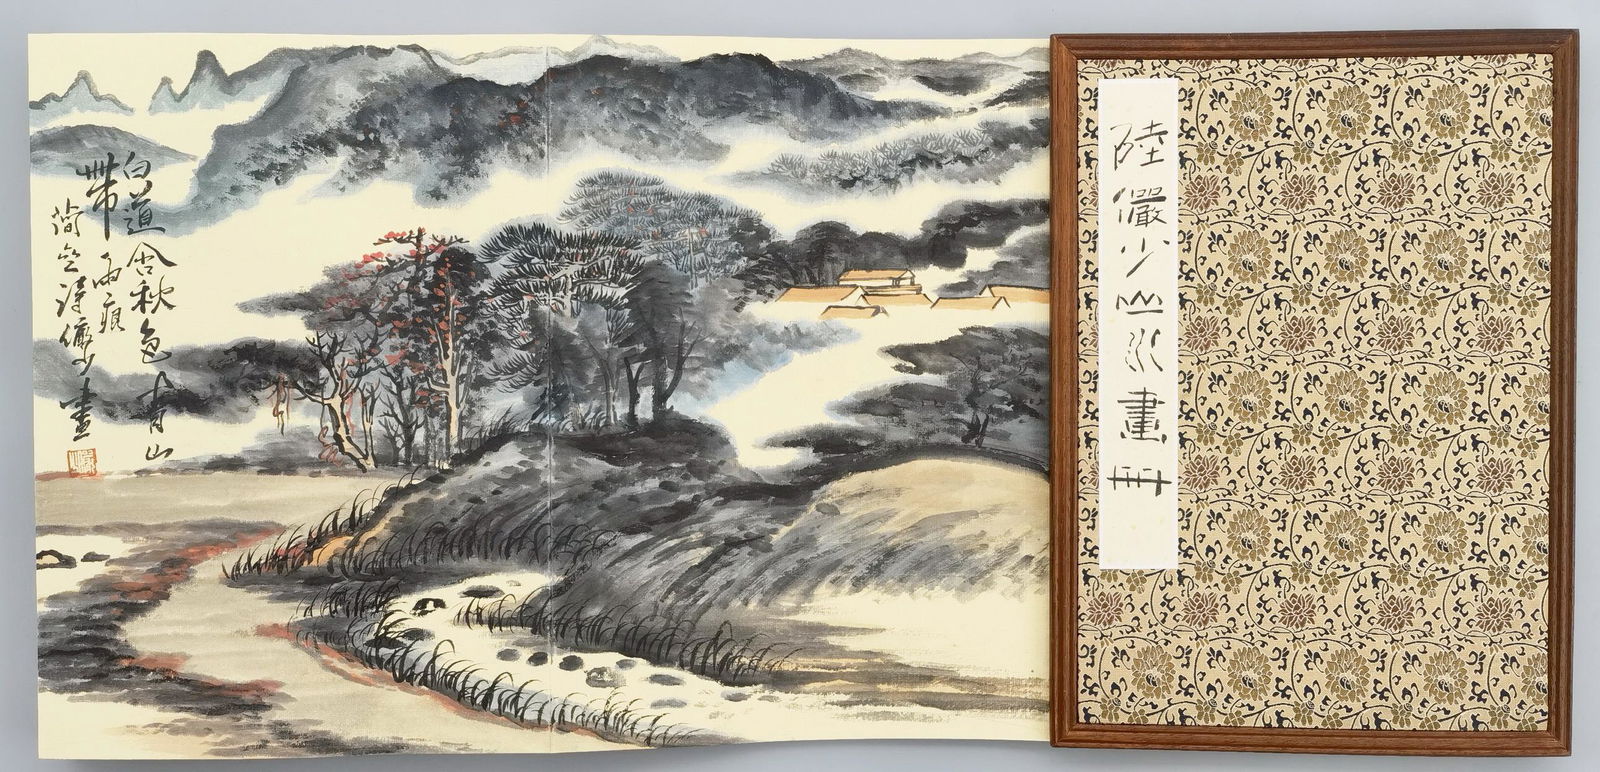 白道含秋色青山
帶雨痕
簡齋詩儼少畫
陸儼少山水畫冊